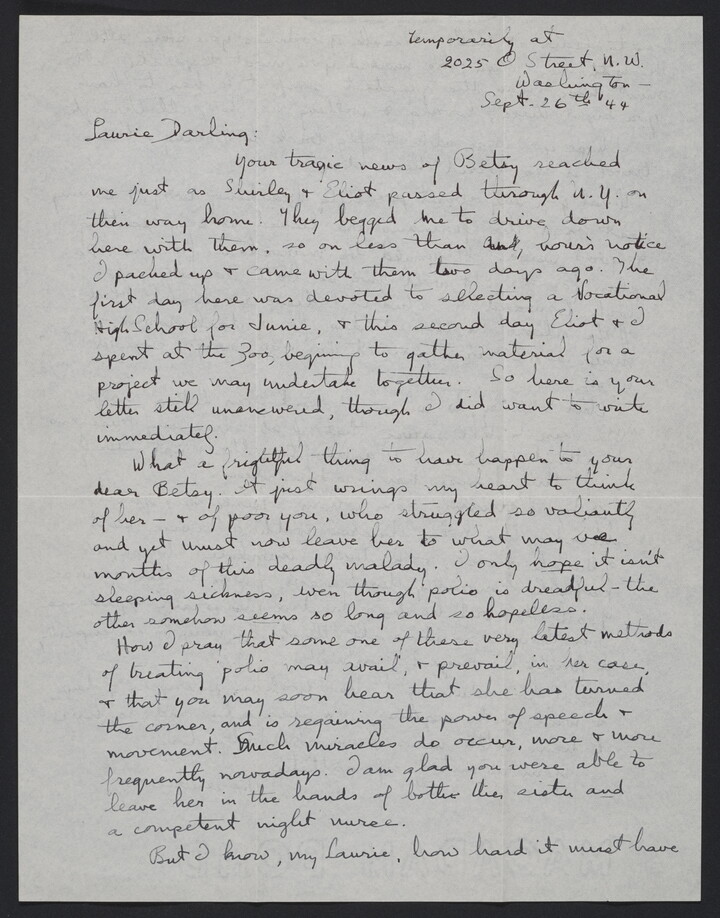 temporarily at
2025 O Street, N.W.
Washington –
Sept. 26th '44
Laurie Darling:
Your tragic news of Betsy reached
me just as Shirley + Eliot passed through N.Y. on
their way home. They begged me to drive down
here with them, so on less than hour's notice
I packed up + came with them two days ago. The
first day here was devoted to selecting a Vocational
High School for Junie, + this second day Eliot + I
spent at the Zoo, begining to gather material for a
project we may undertake together. So here is your
letter still unanswered, though I did want to write
immediately.
What a frightful thing to have happen to your
dear Betsy. It just wrings my heart to think
of her – + of poor you, who struggled so valiantly
and yet must now leave her to what may be
months of this deadly malady. I only hope it isn't
sleeping sickness, even though polio is dreadful – the
other somehow seems so long and so hopeless.
How I pray that some one of these very latest methods
of treating polio may avail, + prevail, in her case,
+ that you may soon hear that she has turned
the corner, and is regaining the power of speech +
movement. Such miracles do occur, more + more
frequently nowadays. I am glad you were able to
leave her in the hands of both her sister and
a competent night nurse.
But I know, my Laurie, how hard it must have